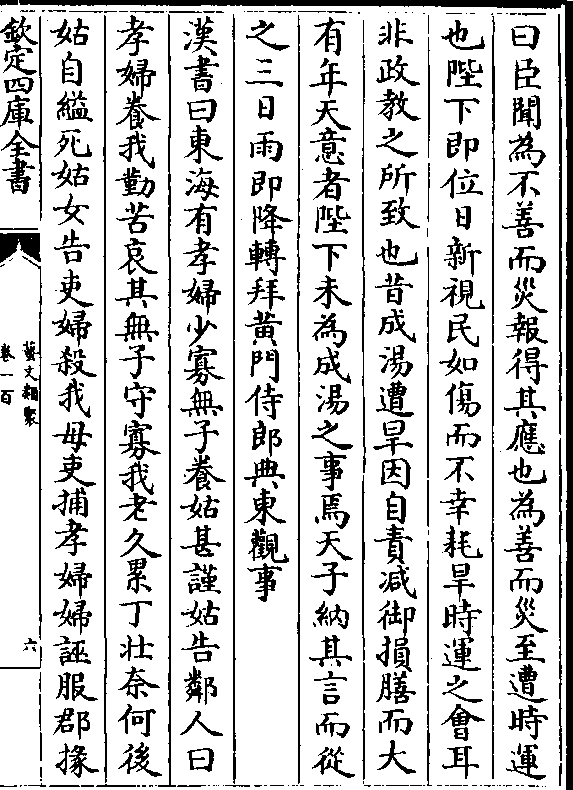 曰臣聞為不善而災報得其應也為善而災至遭時運
也陛下即位日新視民如傷而不幸耗旱時運之會耳
非政教之所致也昔成湯遭旱因自責減御損膳而大
有年天意者陛下未為成湯之事焉天子納其言而從
之三日雨即降轉拜黄門侍郎典東觀事
漢書曰東海有孝婦少寡無子養姑甚謹姑告鄰人曰
孝婦養我勤苦哀其無子守寡我老久累丁壯奈何後
姑自縊死姑女告吏婦殺我母吏捕孝婦婦誣服郡掾
欽定四庫全書
藝文類聚
卷一百
六